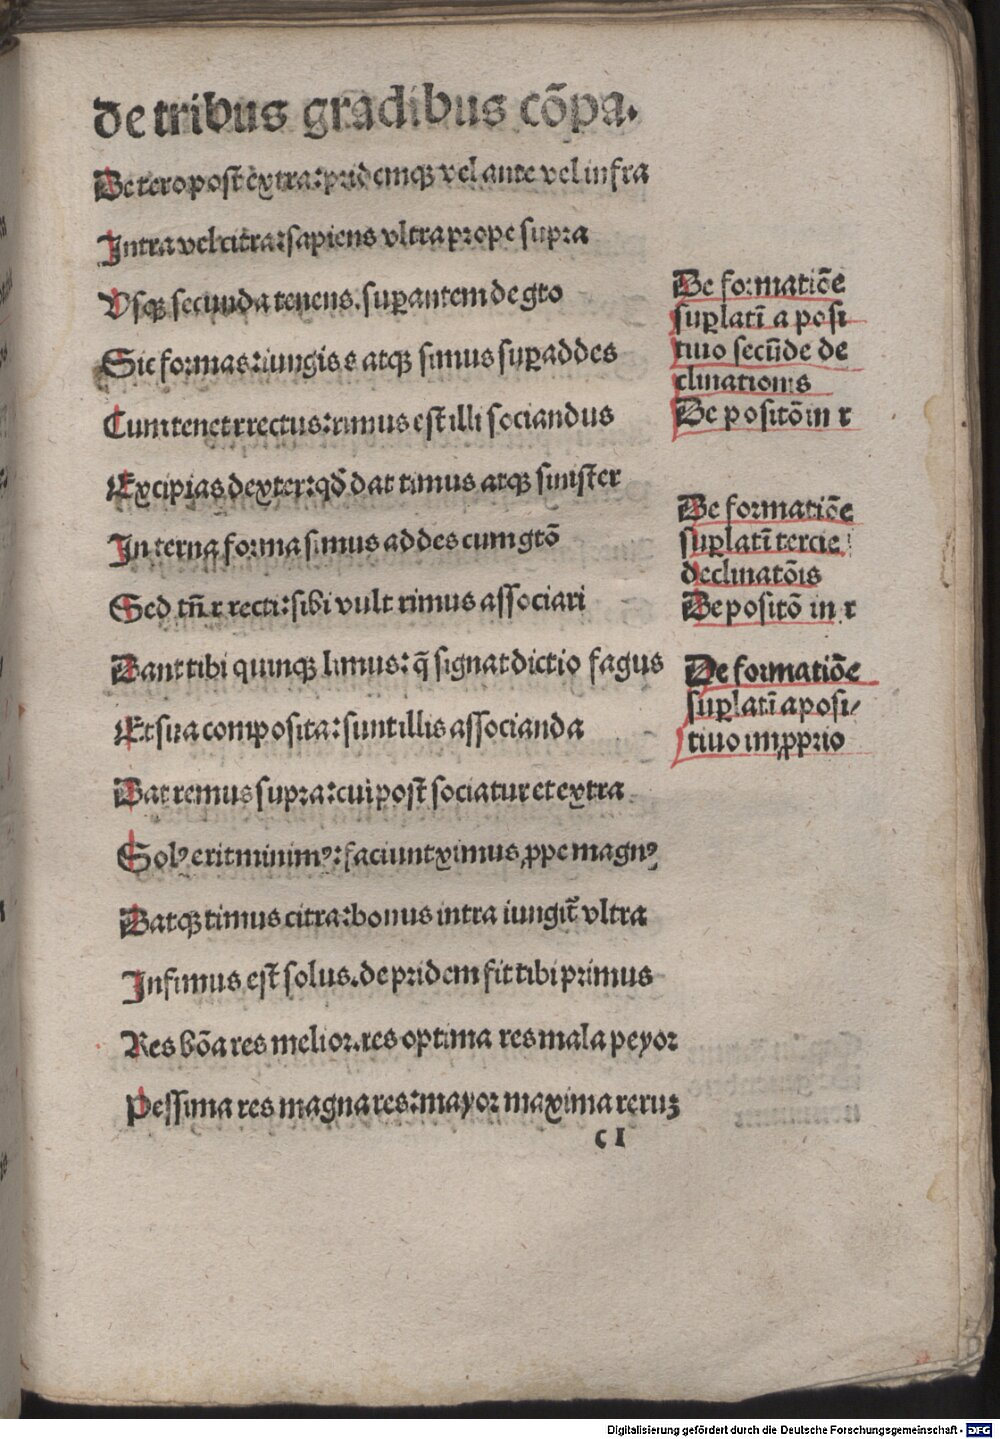 de tribus gradibus cõpa.
De tero post extra: pridemqȝ vel ante vel infra
Intra vel citra: sapiens vltra prope supra
Vsqȝ secunda tenens. suꝑantem de gto
Sic formas: iungis s atqȝ simus suꝑaddes
Cum tenet r rectus: rimus est illi sociandus
Excipias dexter: qđ dat timus atqȝ sinister
In terna forma simus addes cum gtõ
Sed tñ r recti: sibi vult rimus associari
Dant tibi quinqȝ limus: q̃ signat dictio fagus
Et sua composita: sunt illis associanda
Dat remus supra: cui post sociatur et extra
Solꝰ erit minimꝰ: faciunt ximus ꝓpe magnꝰ
Datqȝ timus citra: bonus intra iungit̃ vltra
Infimus est solus. de pridem fit tibi primus
Res bõa res melior. res optima res mala peyor
Pessima res magna res: mayor maxima reruȝ
c I
De formatiõe
suꝑlati͂ a posi
tiuo secũde de
clinationis
De positõ in r
De formatiõe
suꝑlati͂ tercie
declinatõis
De positõ in r
De formatiõe
suꝑlati͂ a posi/
tiuo imꝓprio
Digitalisierung gefördert durch die Deutsche Forschungsgemeinschaft - DFG